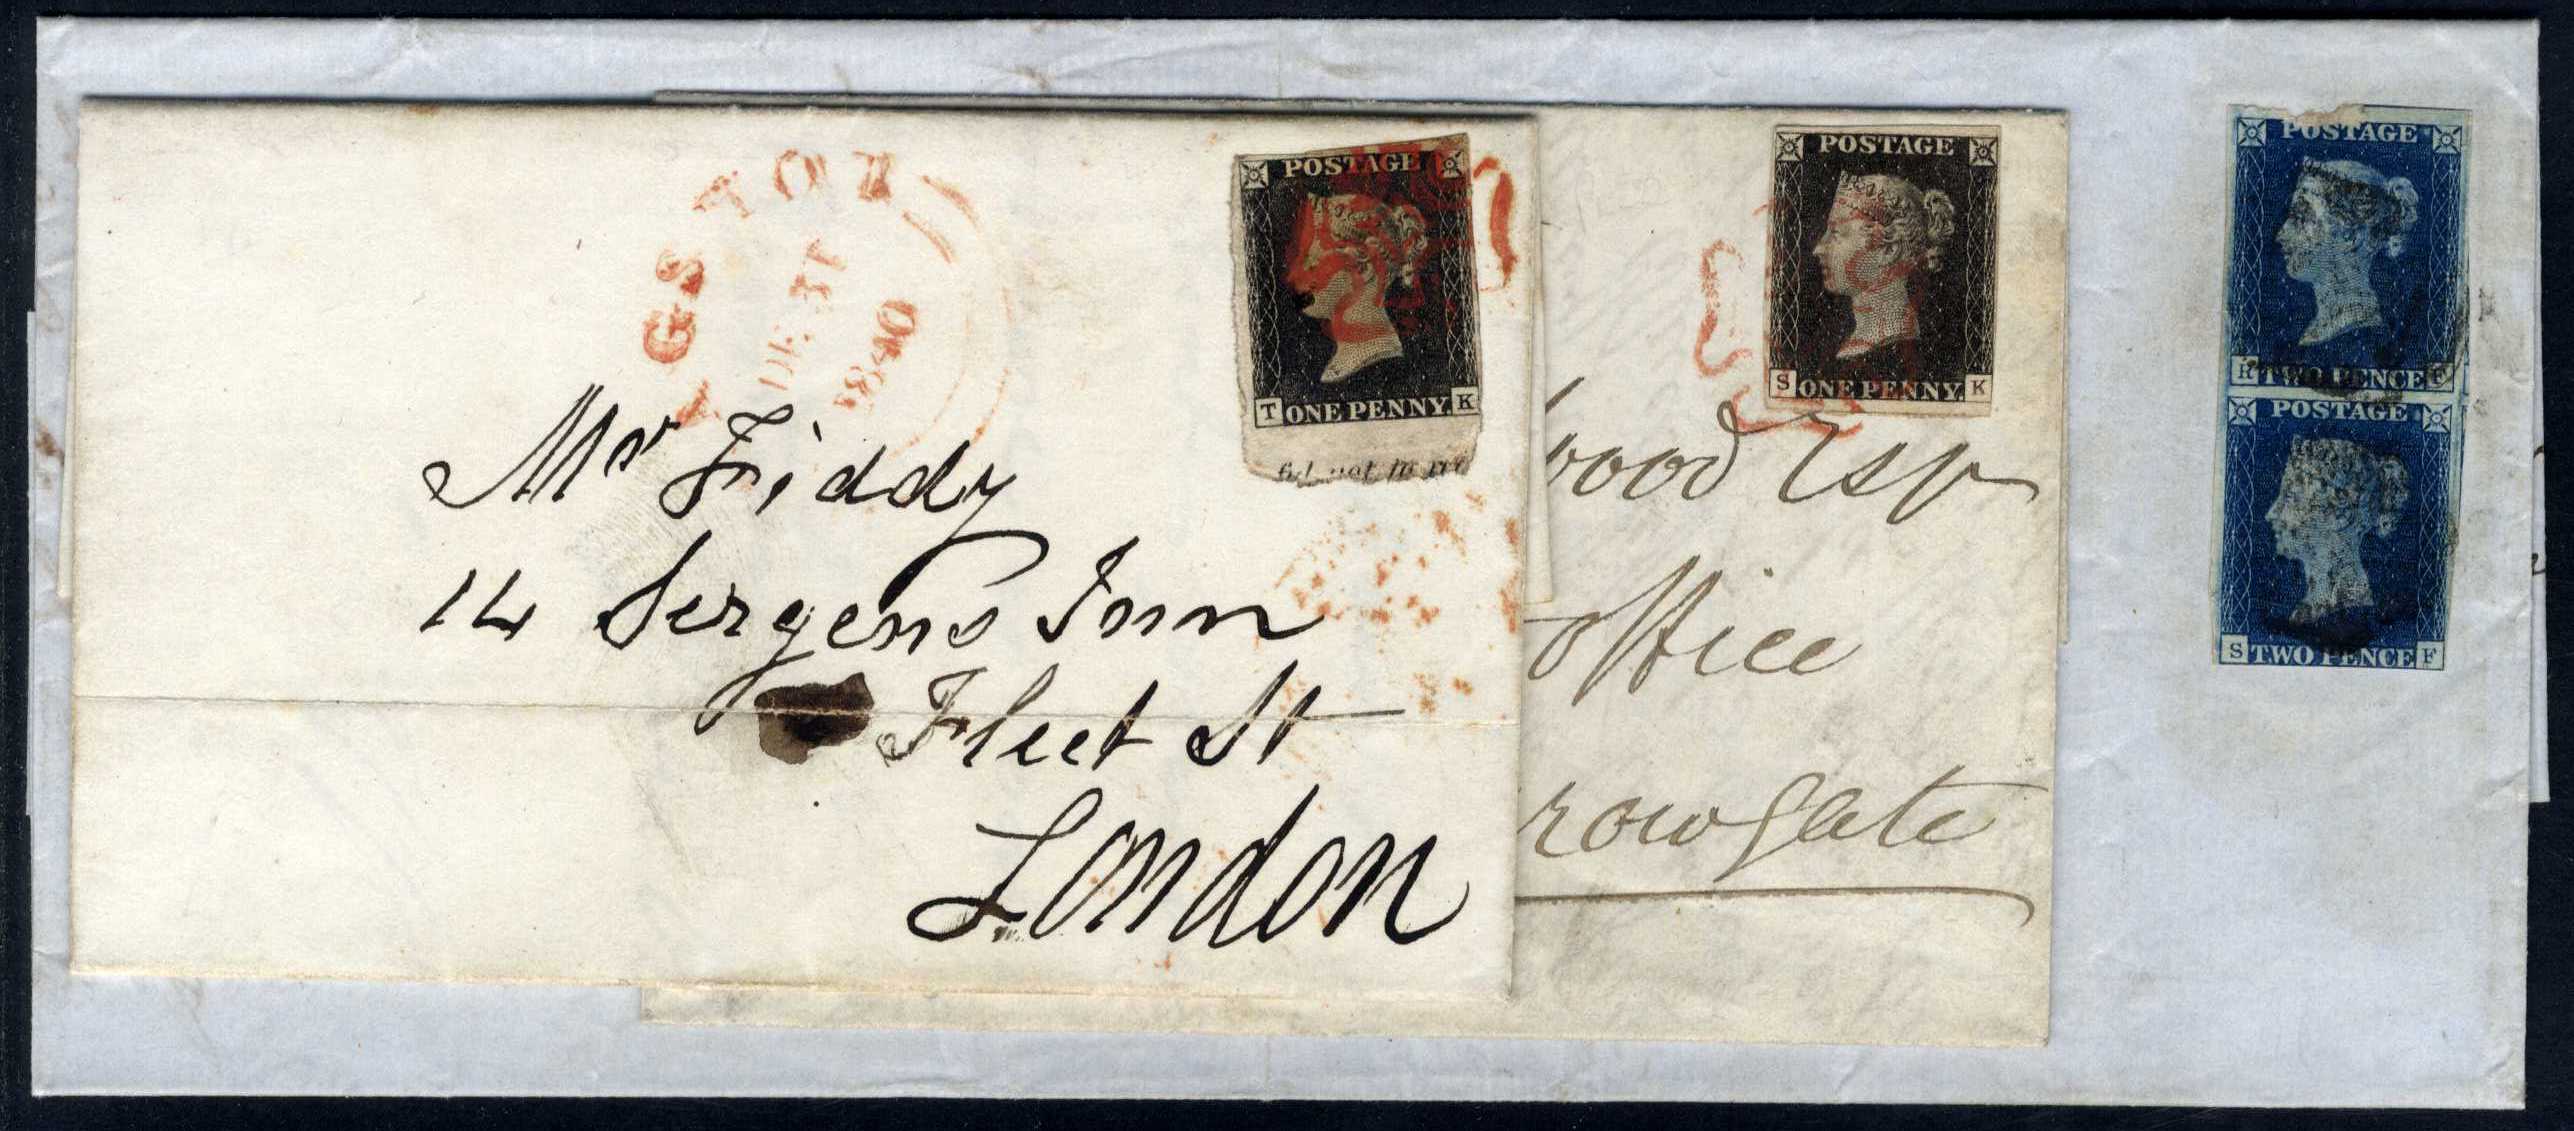 GSTON
DE 31
1840
POSTAGE
T ONE PENNY. K
Mr Fiddy
14 Sergens Inn
Fleet St
London
POSTAGE
S ONE PENNY. K
wood Esq
office
rowgate
POSTAGE
R TWO PENCE F
POSTAGE
S TWO PENCE F